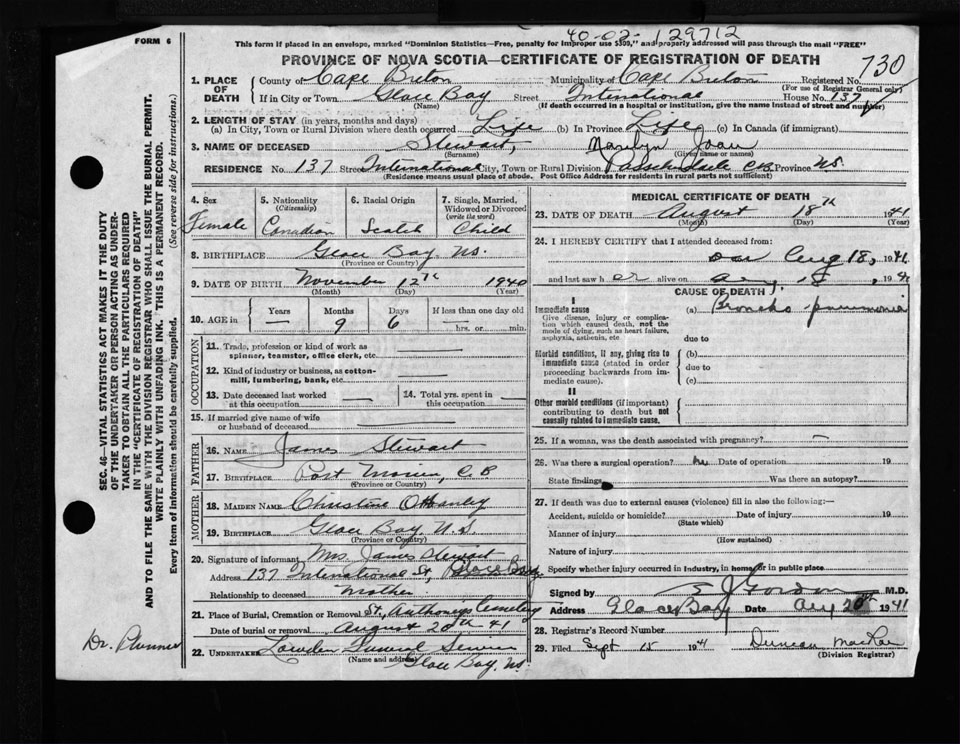 40-02-129712
FORM 6
This form if placed in an envelope, marked "Dominion Statistics—Free, penalty for improper use $300," and properly addressed will pass through the mail "FREE"
PROVINCE OF NOVA SCOTIA—CERTIFICATE OF REGISTRATION OF DEATH
730
1. PLACE OF DEATH
County of Cape Breton Municipality of Cape Breton Registered No.
(For use of Registrar General only)
If in City or Town Glace Bay Street International House No. 137
(Name) (If death occurred in a hospital or institution, give the name instead of street and number)
2. LENGTH OF STAY (in years, months and days)
(a) In City, Town or Rural Division where death occurred Life (b) In Province Life (c) In Canada (if immigrant)
3. NAME OF DECEASED Stewart, Marilyn Joan
(Surname) (Given name or names)
RESIDENCE No. 137 Street International City, Town or Rural Division C.B. Province N.S.
(Residence means usual place of abode. Post Office Address for residents in rural parts not sufficient)
4. Sex
Female
5. Nationality
(Citizenship)
Canadian
6. Racial Origin
Scotch
7. Single, Married, Widowed or Divorced
(write the word)
Child
8. BIRTHPLACE Glace Bay, N.S.
(Province or Country)
9. DATE OF BIRTH November 12th 1940
(Month) (Day) (Year)
10. AGE in
Years Months Days If less than one day old
— 9 6 hrs. or min.
OCCUPATION
11. Trade, profession or kind of work as spinner, teamster, office clerk, etc.
12. Kind of industry or business, as cotton-mill, lumbering, bank, etc.
13. Date deceased last worked at this occupation
14. Total yrs. spent in this occupation
15. If married give name of wife or husband of deceased
FATHER
16. NAME James Stewart
17. BIRTHPLACE Port Morien, C.B
(Province or Country)
MOTHER
18. MAIDEN NAME Christine O'Hanley
19. BIRTHPLACE Glace Bay, N.S.
(Province or Country)
20. Signature of informant Mrs. James Stewart
Address 137 International St, Glace Bay
Relationship to deceased Mother
21. Place of Burial, Cremation or Removal St. Anthony's Cemetery
Date of burial or removal August 20th 41
22. UNDERTAKER Lowden Funeral Service
(Name and address)
Glace Bay, N.S.
MEDICAL CERTIFICATE OF DEATH
23. DATE OF DEATH August 18th 1941
(Month) (Day) (Year)
24. I HEREBY CERTIFY that I attended deceased from:
on Aug 18, 1941
and last saw her alive on Aug. 18, 1941
CAUSE OF DEATH
I
Immediate cause
Give disease, injury or complication which caused death, not the mode of dying, such as heart failure, asphyxia, asthenia, etc
(a) Broncho pneumonia
due to
Morbid conditions, if any, giving rise to immediate cause (stated in order proceeding backwards from immediate cause).
(b)
due to
(c)
II
Other morbid conditions (if important) contributing to death but not causally related to immediate cause.
25. If a woman, was the death associated with pregnancy? —
26. Was there a surgical operation? No Date of operation 19
State findings Was there an autopsy?
27. If death was due to external causes (violence) fill in also the following:—
Accident, suicide or homicide? Date of injury 19
(State which)
Manner of injury
(How sustained)
Nature of injury
Specify whether injury occurred in industry, in home or in public place
Signed by E J Gordon M.D.
Address Glace Bay Date Aug 20th 1941
28. Registrar's Record Number
29. Filed Sept 15 1941 Duncan MacRae
(Division Registrar)
SEC. 46—VITAL STATISTICS ACT MAKES IT THE DUTY
OF THE UNDERTAKER OR PERSON ACTING AS UNDER-
TAKER TO OBTAIN ALL THE PARTICULARS REQUIRED
IN THE "CERTIFICATE OF REGISTRATION OF DEATH"
AND TO FILE THE SAME WITH THE DIVISION REGISTRAR WHO SHALL ISSUE THE BURIAL PERMIT.
WRITE PLAINLY WITH UNFADING INK. THIS IS A PERMANENT RECORD.
Every item of information should be carefully supplied. (See reverse side for instructions.)
Dr. Plunner